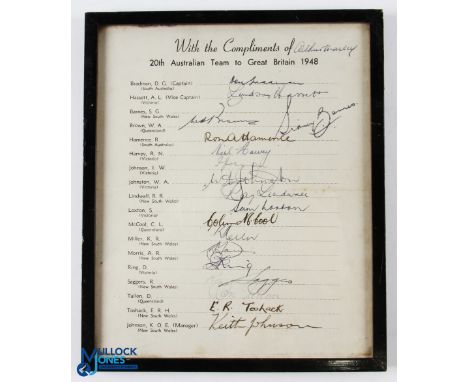 With the Compliments of
20th Australian Team to Great Britain 1948
Bradman, D. G. (Captain)
(South Australia)
Hassett, A. L. (Vice Captain)
(Victoria)
Barnes, S. G.
(New South Wales)
Sidney Barnes
Brown, W. A.
(Queensland)
Hamence, R.
(South Australia)
Ron A Hamence
Harvey, R. N.
(Victoria)
Neil Harvey
Johnson, I. W.
(Victoria)
Johnston, W. A.
(Victoria)
Lindwall, R. R.
(New South Wales)
Ray Lindwall
Loxton, S.
(Victoria)
Sam Loxton
McCool, C. L.
(Queensland)
Colin McCool
Miller, K. R.
(New South Wales)
Morris, A. R.
(New South Wales)
Ring, D.
(Victoria)
Ring
Saggers, R.
(New South Wales)
Saggers
Tallon, D.
(Queensland)
Toshack, E. R. H.
(New South Wales)
E. R. Toshack
Johnson, K. O. E. (Manager)
(New South Wales)
Keith Johnson
MULLOCK
JONES